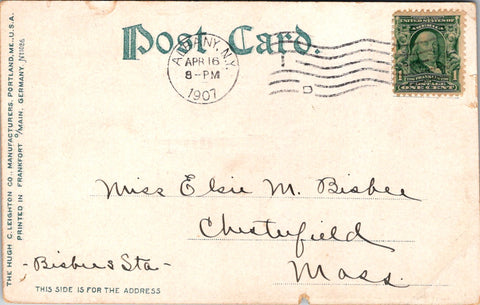 Post Card.
ALBANY, N.Y.
APR 16
8-PM
1907
D
UNITED STATES OF AMERICA
FRANKLIN
ONE CENT
THE HUGH C. LEIGHTON CO., MANUFACTURERS, PORTLAND, ME., U.S.A.
PRINTED IN FRANKFORT O/MAIN, GERMANY.
Miss Elsie M. Bisbee
Chesterfield
Mass.
Bisbees Sta
THIS SIDE IS FOR THE ADDRESS